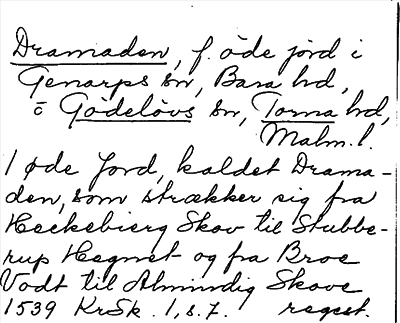 Dramaden, f. öde jord i
Genarps sn, Bara hd,
o Gödelövs sn, Torna hd,
Malm. l.
1 øde Jord, kaldet Drama-
den, som strækker sig fra
Heckebierg Skov til Stubbe-
rup Hegnet og fra Broe
Vadt til Almindig Skove
1539 KrSk. 1, s. 7. regest.